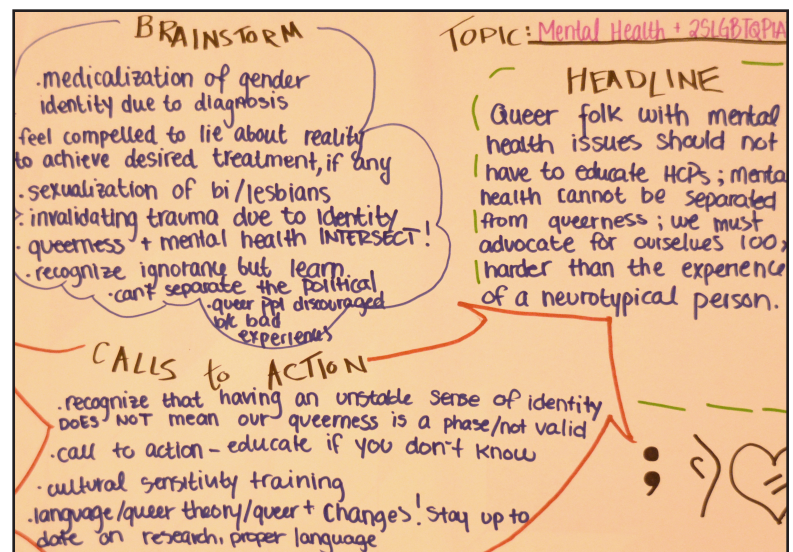 BRAINSTORM
.medicalization of gender
identity due to diagnosis
feel compelled to lie about reality
to achieve desired treatment, if any
.sexualization of bi/lesbians
.invalidating trauma due to identity
.queerness + mental health INTERSECT!
.recognize ignorance but learn
.can't separate the political
.queer ppl discouraged
b/c bad
experiences
TOPIC: Mental Health + 2SLGBTQPIA
HEADLINE
Queer folk with mental
health issues should not
have to educate HCPs; menta
health cannot be separated
from queerness; we must
advocate for ourselves 100x
harder than the experience
of a neurotypical person.
CALLS to ACTION
.recognize that having an unstable sense of identity
DOES NOT mean our queerness is a phase/not valid
.call to action - educate if you don't know
.cultural sensitivity training
.language/queer theory/queer+ changes! Stay up to
date on research, proper language